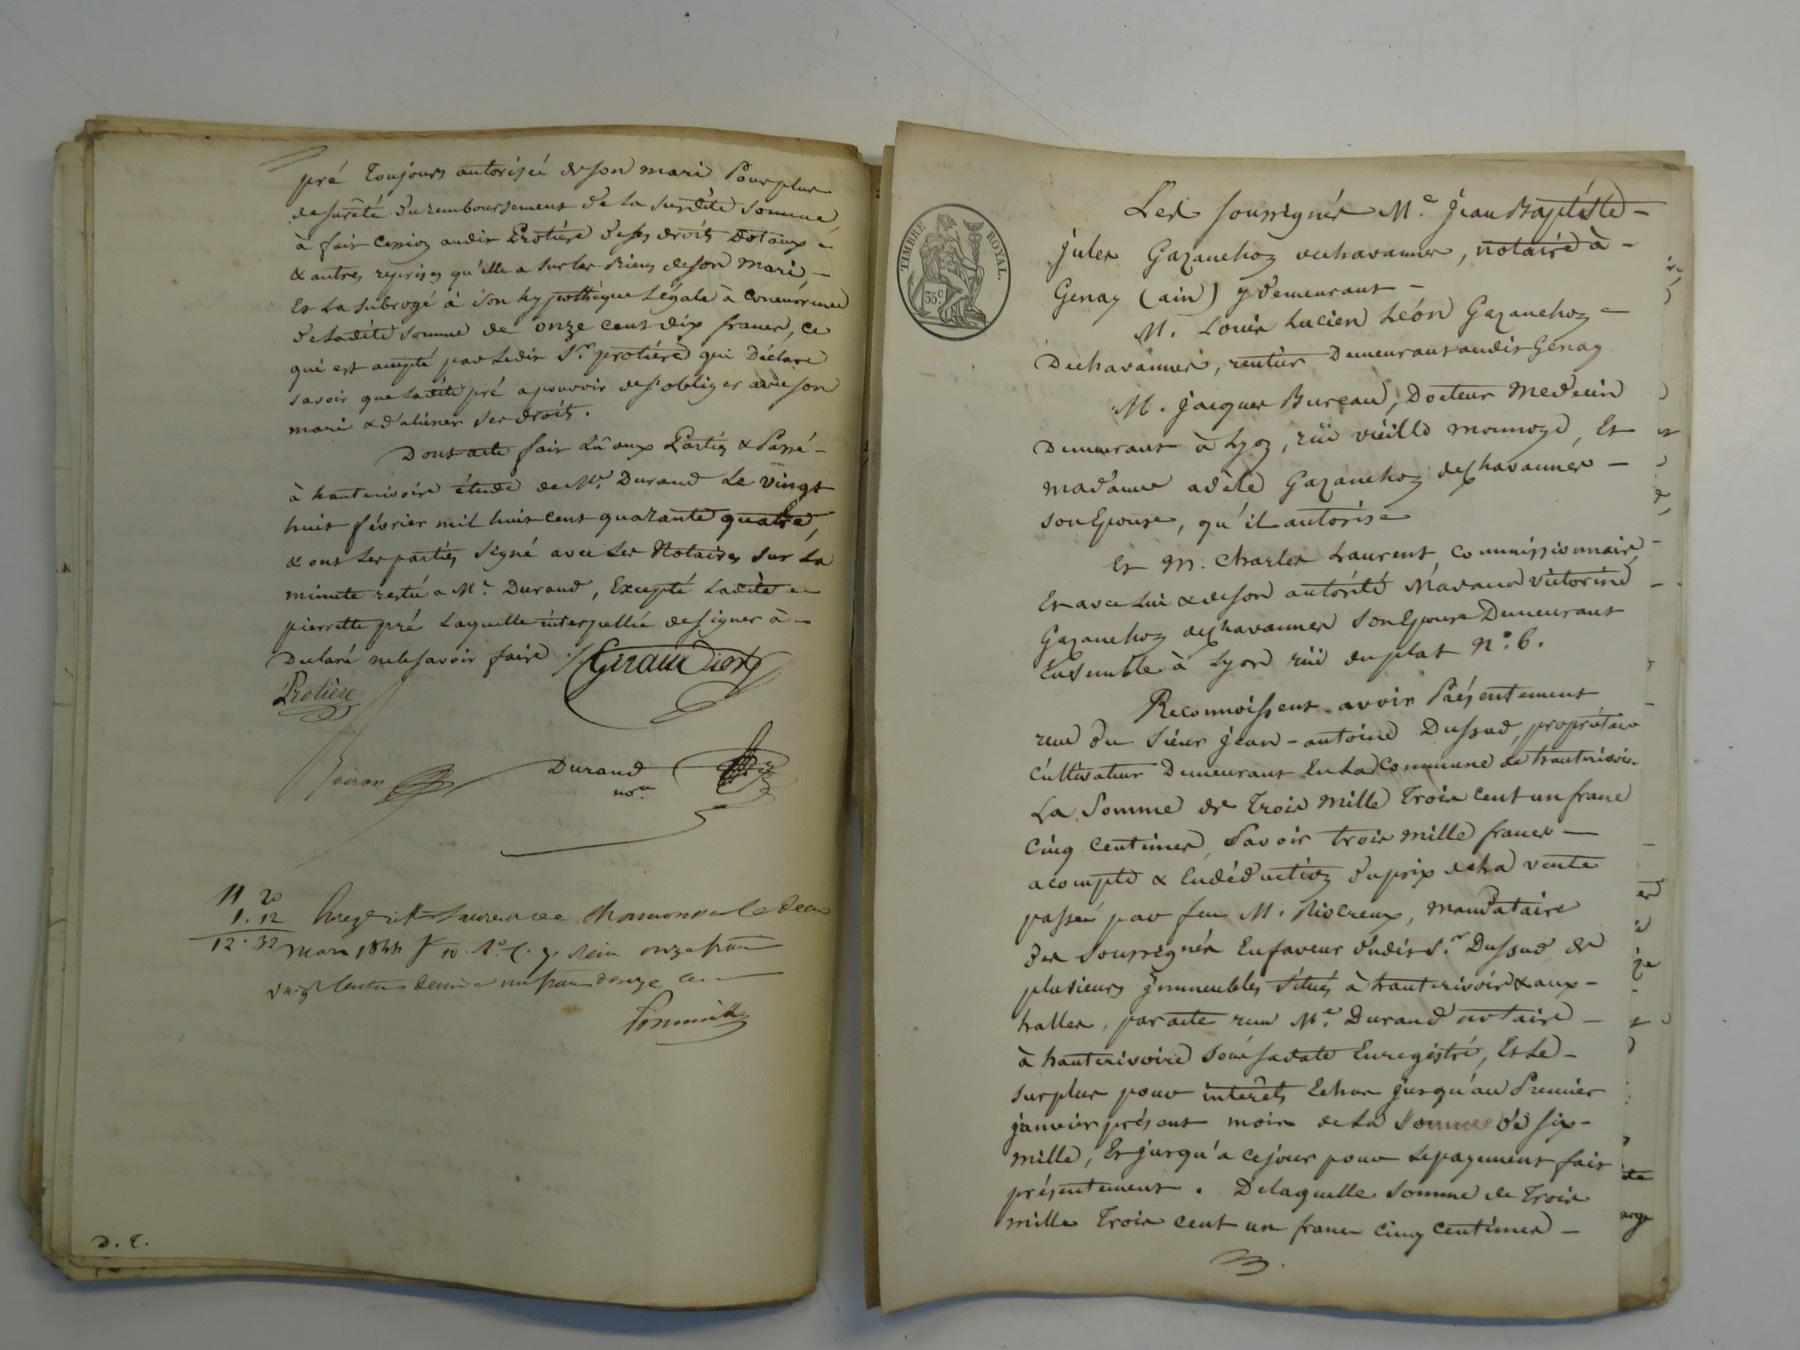 pré toujours autorisée de son mari Pour plus
de sûreté du remboursement de la susdite somme
à fait cession audit Protière de ses droits Dotaux
& autres reprises qu'elle a sur les biens de son mari
Et La subrogé à son hypothèque Légale à concurrence
de Ladite somme de onze cent dix francs, ce
qui est accepté par Ledit Sr. protière qui Déclare
savoir que Ladite pré a pouvoir de s'obliger avec son
mari & d'aliéner ses droits.
Dont acte fait Lû aux Parties & Passé
à hauterivoire étude de Me. Durand Le vingt
huit février mil huit cent quarante quatre,
& ont Les parties signé avec Les Notaires sur La
minute restée a Me. Durand, Excepté Ladite
pierrette pré Laquelle interpellée de signer à
Déclaré ne le savoir faire
Protière
Durand
nore
11 20
1. 12
12. 32
mars 1844 fo 10 Ro. C. 7. Reçu onze francs
vingt centimes decime un franc douze cen
D. C.
TIMBRE ROYAL.
35c
Les soussignés Me. Jean Baptiste
jules Gazanchoz dechavannes, notaire à
Genay (ain) y demeurant
M. Louis Lucien Léon Gazanchoz
Dechavannes, rentier Demeurant audit Genay
M. Jacques Bureau, Docteur Medecin
Demeurant à Lyon, rüe vieille monnoye, Et
madame adèle Gazanchoz deschavannes
son Epouse, qu'il autorise
Et M. Charles Laurent Commissionnaire,
Et avec Lui & de son autorité Madame victorine
Gazanchoz deschavannes son Epouse Demeurant
Ensemble à Lyon rüe du plat No. 6.
Reconnoissent avoir Présentement
reçu du Sieur Jean-antoine Dussud, propriétaire
cultivateur Demeurant En La Commune de hauterivoire
La Somme de Trois mille Trois cent un franc
cinq centimes, Savoir trois mille francs
acompte & En déduction du prix de La vente
passée par feu M. Riocreux, mandataire
des soussignés En faveur dudit Sr. Dussud de
plusieurs immeubles situés à hauterivoire & aux
halles, par acte reçu Me. Durand notaire
à hauterivoire sous sa date Enregistré, Et Le
surplus pour intérêts Echus jusqu'au Premier
janvier présent mois de La Somme de six
mille, Et jusqu'a ce jour pour Le payement fait
présentement. De laquelle Somme de Trois
mille Trois cent un franc cinq centimes